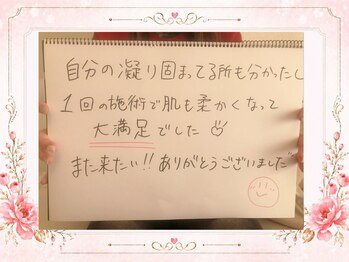 自分の凝り固まってる所も分かったし
1回の施術で肌も柔かくなって
大満足でした
また来たい!! ありがとうございました